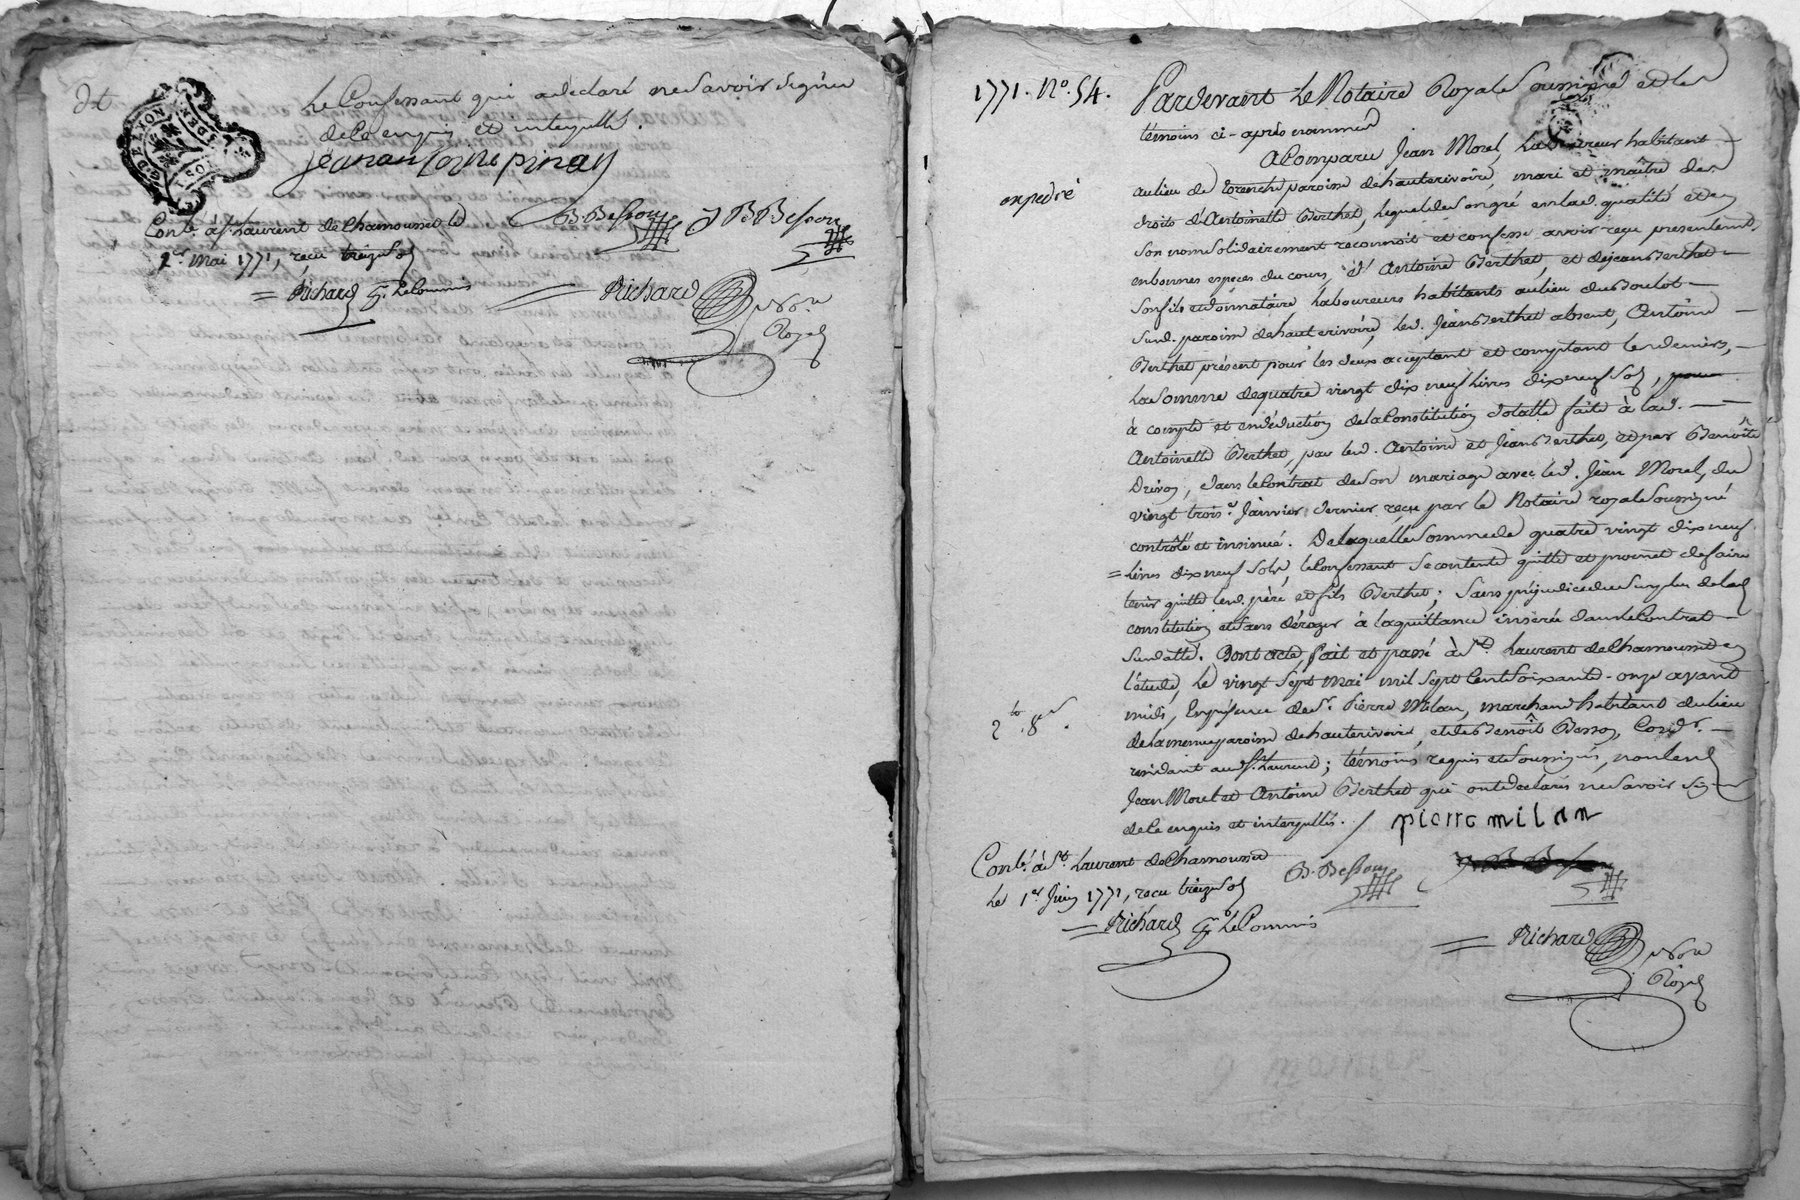 Le Confessant qui a declaré ne Savoir Signer
de ce enquis et interpellé.
jeanantoine pinay
B. Besson J B Besson
Conlé à St. Laurent de Chamousset le
1er mai 1771, reçu treize Sols
Richard Gr. Le Commis
Richard
Nore
Royal
1771. No. 54.
Pardevant Le Notaire Royal Soussigné et les
témoins ci-après nommés
expedié
A Comparu Jean Morel, Laboureur habitant
au lieu de paroisse de hauterivoire, mari et maître des
droits d'Antoinette Berthet, lequel de Son gré en lad. qualité et en
Son nom Solidairement reconnoit et confesse avoir reçu presentement
en bonnes especes du cours, d'Antoine Berthet, et de Jean Berthet
Son fils et donnataire Laboureurs habitants au lieu du Boulot
Susd. paroisse de hauterivoire, led. Jean Berthet absent, Antoine
Berthet présent pour les deux acceptant et comptant les deniers,
La Somme de quatre vingt dix neuf Livres dix neuf Sols, pour
à compte et en déduction de la Constitution dotalle faite à lad.
Antoinette Berthet, par led. Antoine et Jean Berthet, et par Benoîte
Drivon, dans le Contrat de Son mariage avec led. Jean Morel, du
vingt trois Janvier dernier reçu par le Notaire royal Soussigné
contrôlé et insinué. De laquelle Somme de quatre vingt dix neuf
Livres dix neuf Sols, le Confessant Se contente quitte et promet de faire
tenir quitte lesd. père et fils Berthet; Sans préjudice du Surplus de lad.
constitution et Sans déroger à la quittance inserée dans le Contrat
Susdatté. Dont acte, fait et passé à St. Laurent de Chamousset en
l'étude, le vingt Sept mai mil Sept Cent Soixante-onze avant
midi, En présence de Sr. Pierre Milan, marchand habitant au lieu
de la meme paroisse de hauterivoire, et de Benoît Besson, Cordr.
residant aud. St. Laurent; témoins requis et Soussignés, non lesd.
Jean Morel et Antoine Berthet qui ont declarés ne Savoir Sig
de ce enquis et interpellés. pierre milan
Conlé. à St. Laurent de Chamousset
B. Besson
Le 1er Juin 1771, reçu treize Sols
Richard Gr. Le Commis
Richard
Nore
Royal